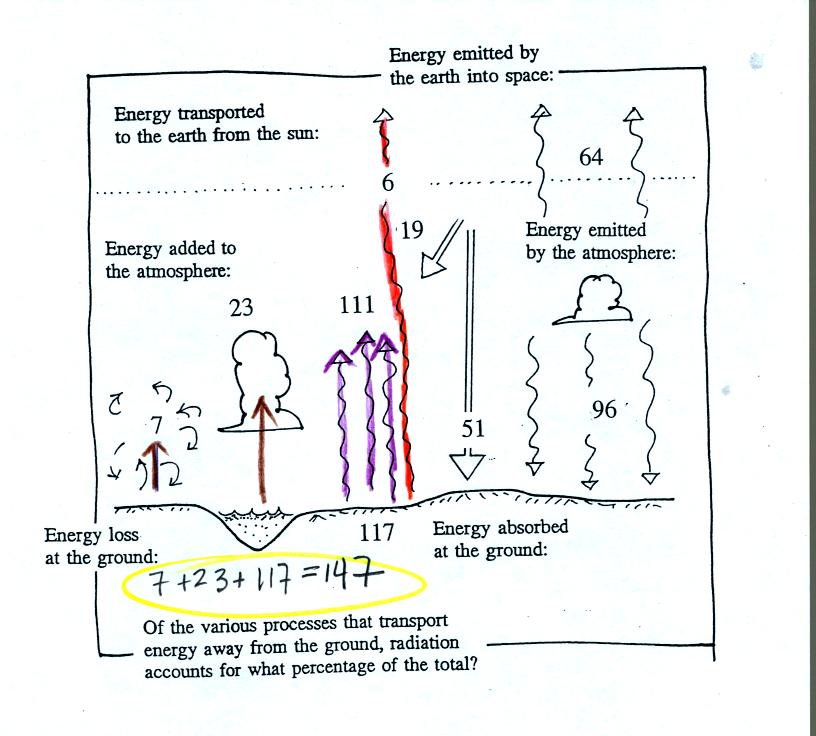 Energy emitted by
the earth into space:
Energy transported
to the earth from the sun:
64
6
19
Energy emitted
by the atmosphere:
Energy added to
the atmosphere:
23
111
7
96
51
117
Energy loss
at the ground:
Energy absorbed
at the ground:
7+23+117=147
Of the various processes that transport
energy away from the ground, radiation
accounts for what percentage of the total?